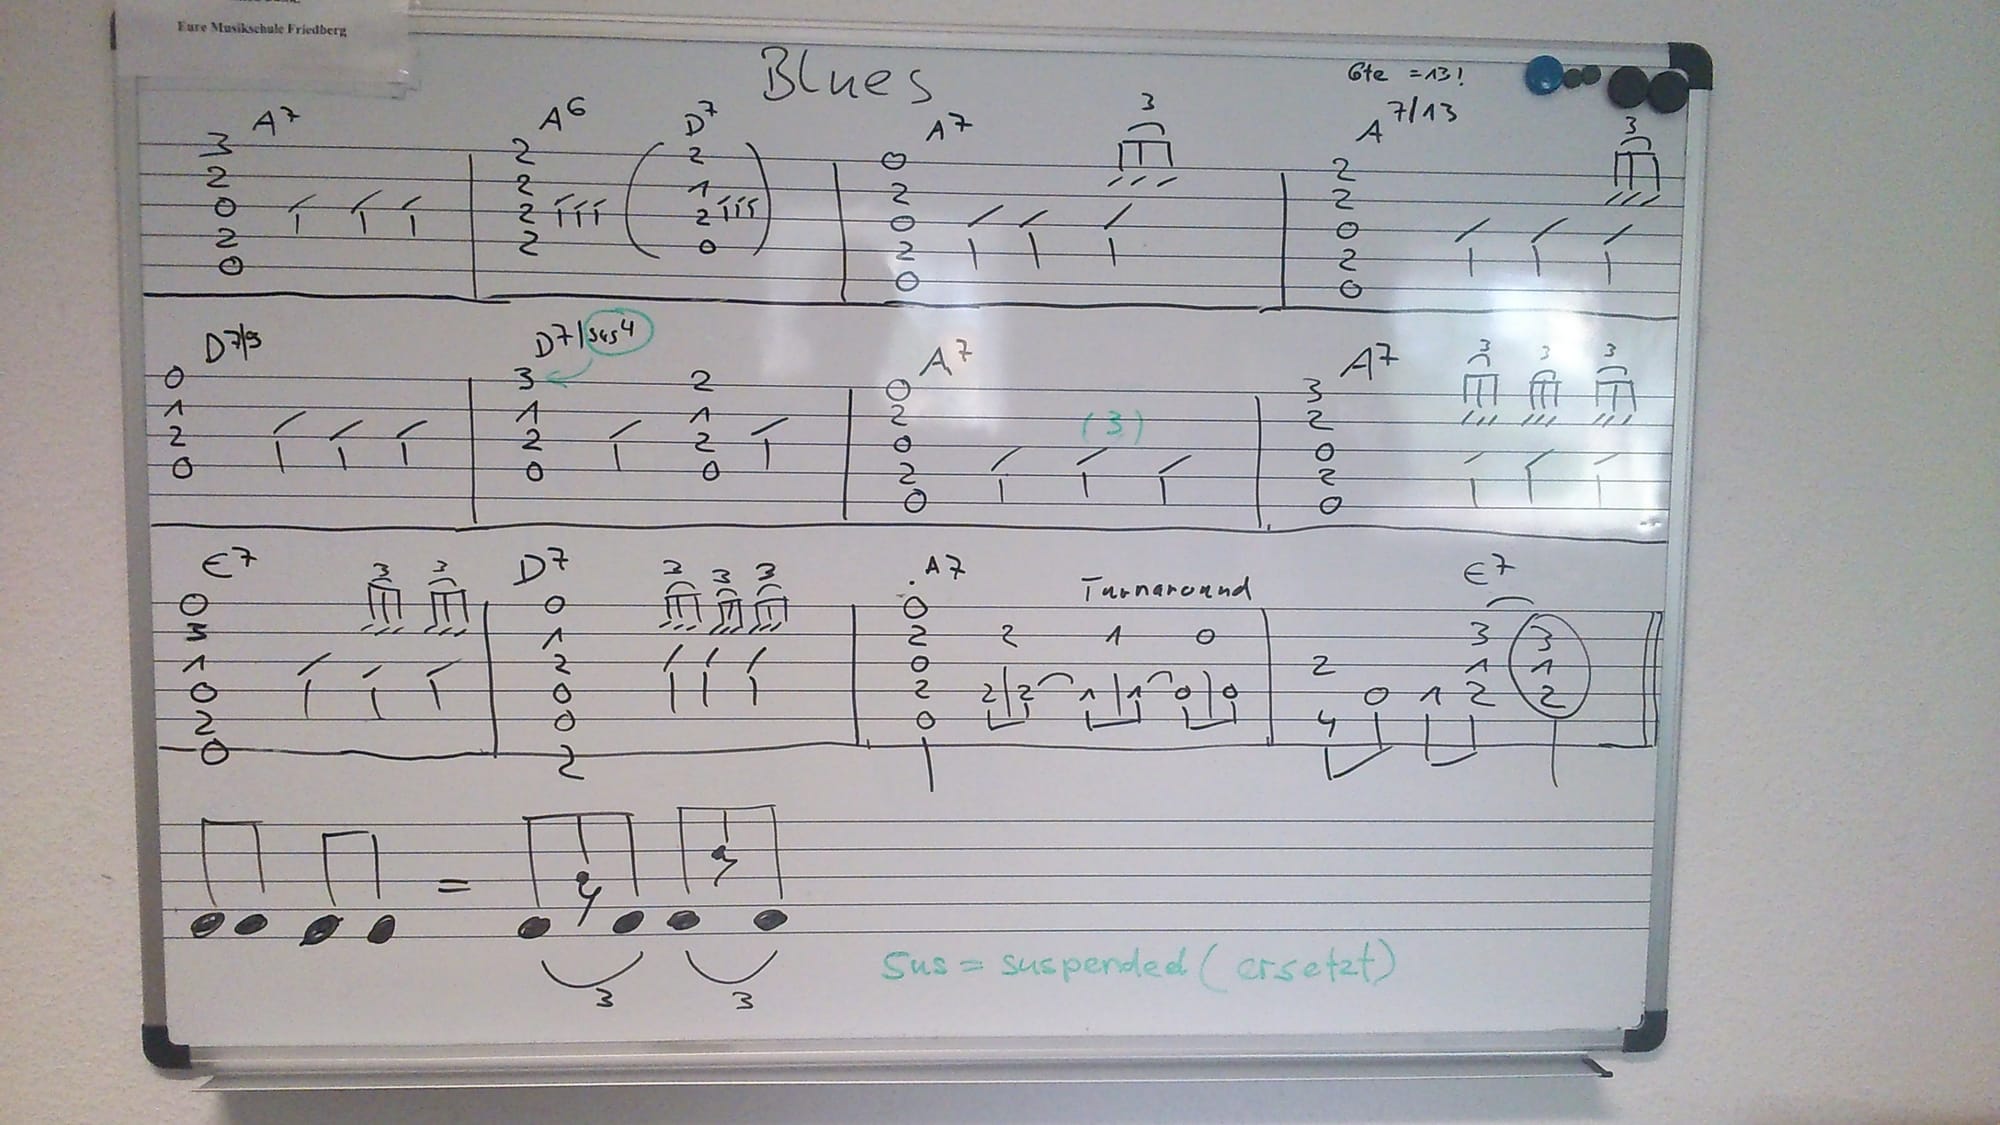 Eure Musikschule Friedberg
Blues
6te = 13!
A7 A6 D7 A7 3 A7/13 3
3 2 2 0 2
2 2 1 2 2
0 2 2 0 0
2 2 0 2 2
0 0 0
D7/9 D7/sus4 A7 A7 3 3 3
0 3 2 0 3
1 1 1 2 2
2 2 2 0 (3) 0
0 0 0 2 2
0 0
E7 3 3 D7 3 3 3 A7 Turnaround E7
0 0 0
3 1 2 2 1 0 3 3
1 2 0 2 1 1
0 0 2 2 2 1 1 0 0 0 1 2 2
2 0 0 4
0 2
=
3 3
Sus = suspended (ersetzt)